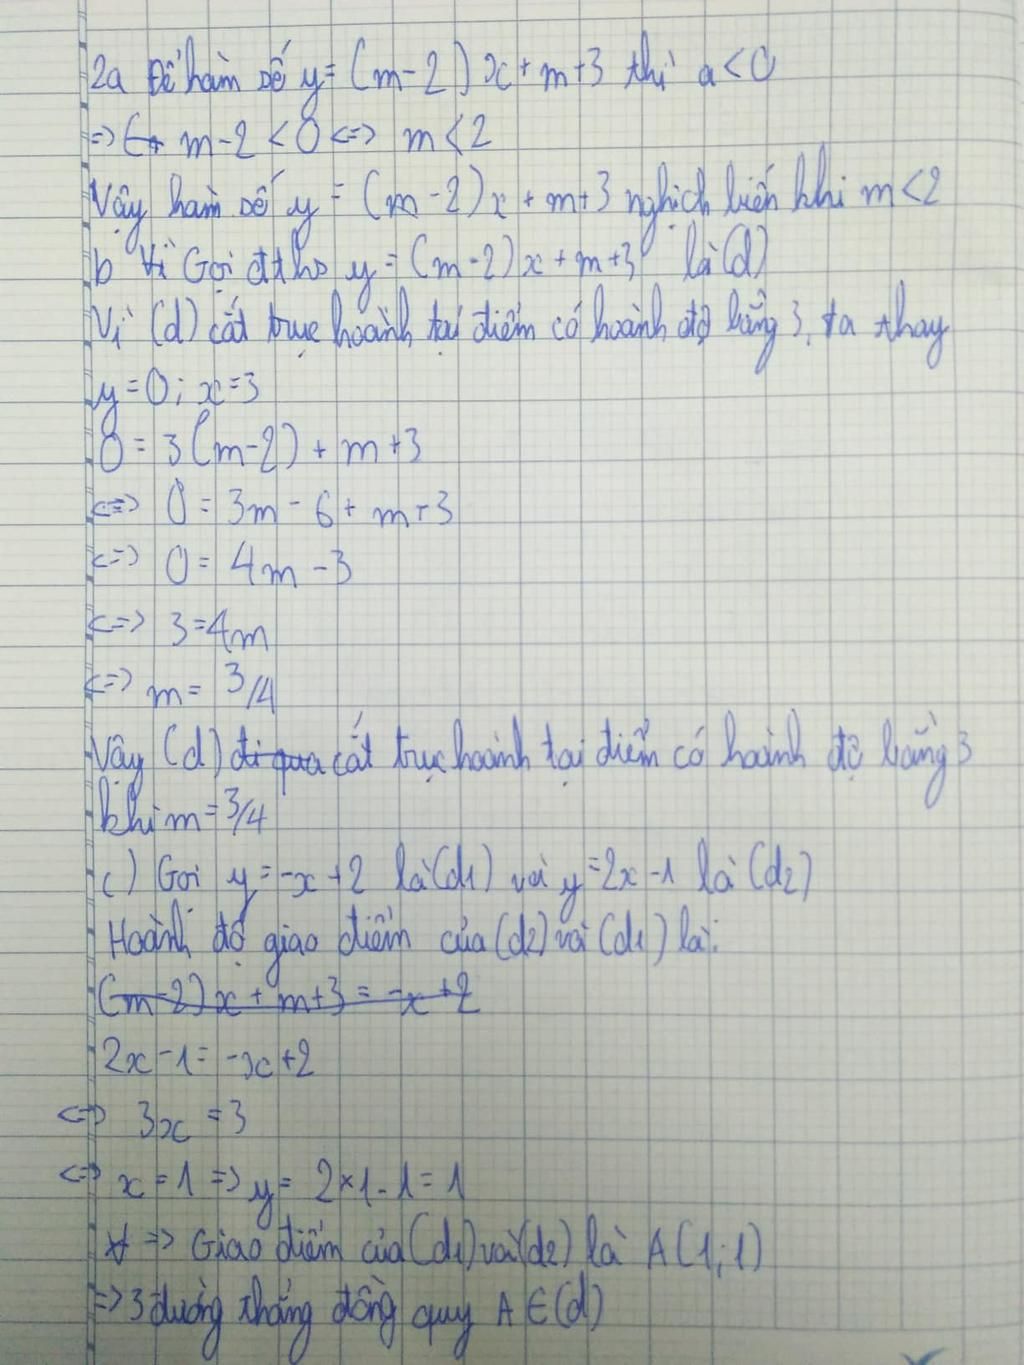 2a Để hàm số y = (m-2)x + m+3 thì a < 0
=> m-2 < 0 <=> m < 2
Vậy hàm số y = (m-2)x + m+3 nghịch biến khi m < 2
b Vì Gọi đths y = (m-2)x + m+3 là (d)
Vì (d) cắt trục hoành tại điểm có hoành độ bằng 3, ta thay
y = 0; x = 3
0 = 3(m-2) + m+3
<=> 0 = 3m - 6 + m+3
<=> 0 = 4m - 3
<=> 3 = 4m
<=> m = 3/4
Vậy (d) đi qua cắt trục hoành tại điểm có hoành độ bằng 3
khi m = 3/4
c) Gọi y = -x + 2 là (d1) với y = 2x - 1 là (d2)
Hoành độ giao điểm của (d2) với (d1) là:
(m-2)x + m+3 = -x + 2
2x - 1 = -x + 2
<=> 3x = 3
<=> x = 1 => y = 2×1 - 1 = 1
=> Giao điểm của (d1) với (d2) là A(1;1)
=> 3 đường thẳng đồng quy A ∈ (d)